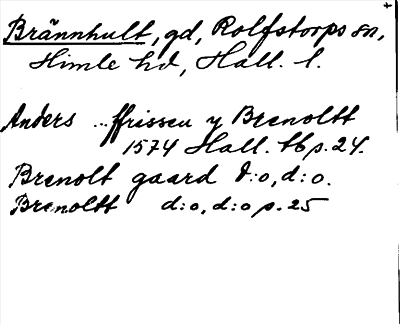 Brännhult, gd, Rolfstorps sn,
Himle hd, Hall. l.
Anders ... ffrissen y Brenoltt
1574 Hall. tb p. 24.
Brenolt gaard d:o, d:o.
Brenoltt d:o, d:o p. 25